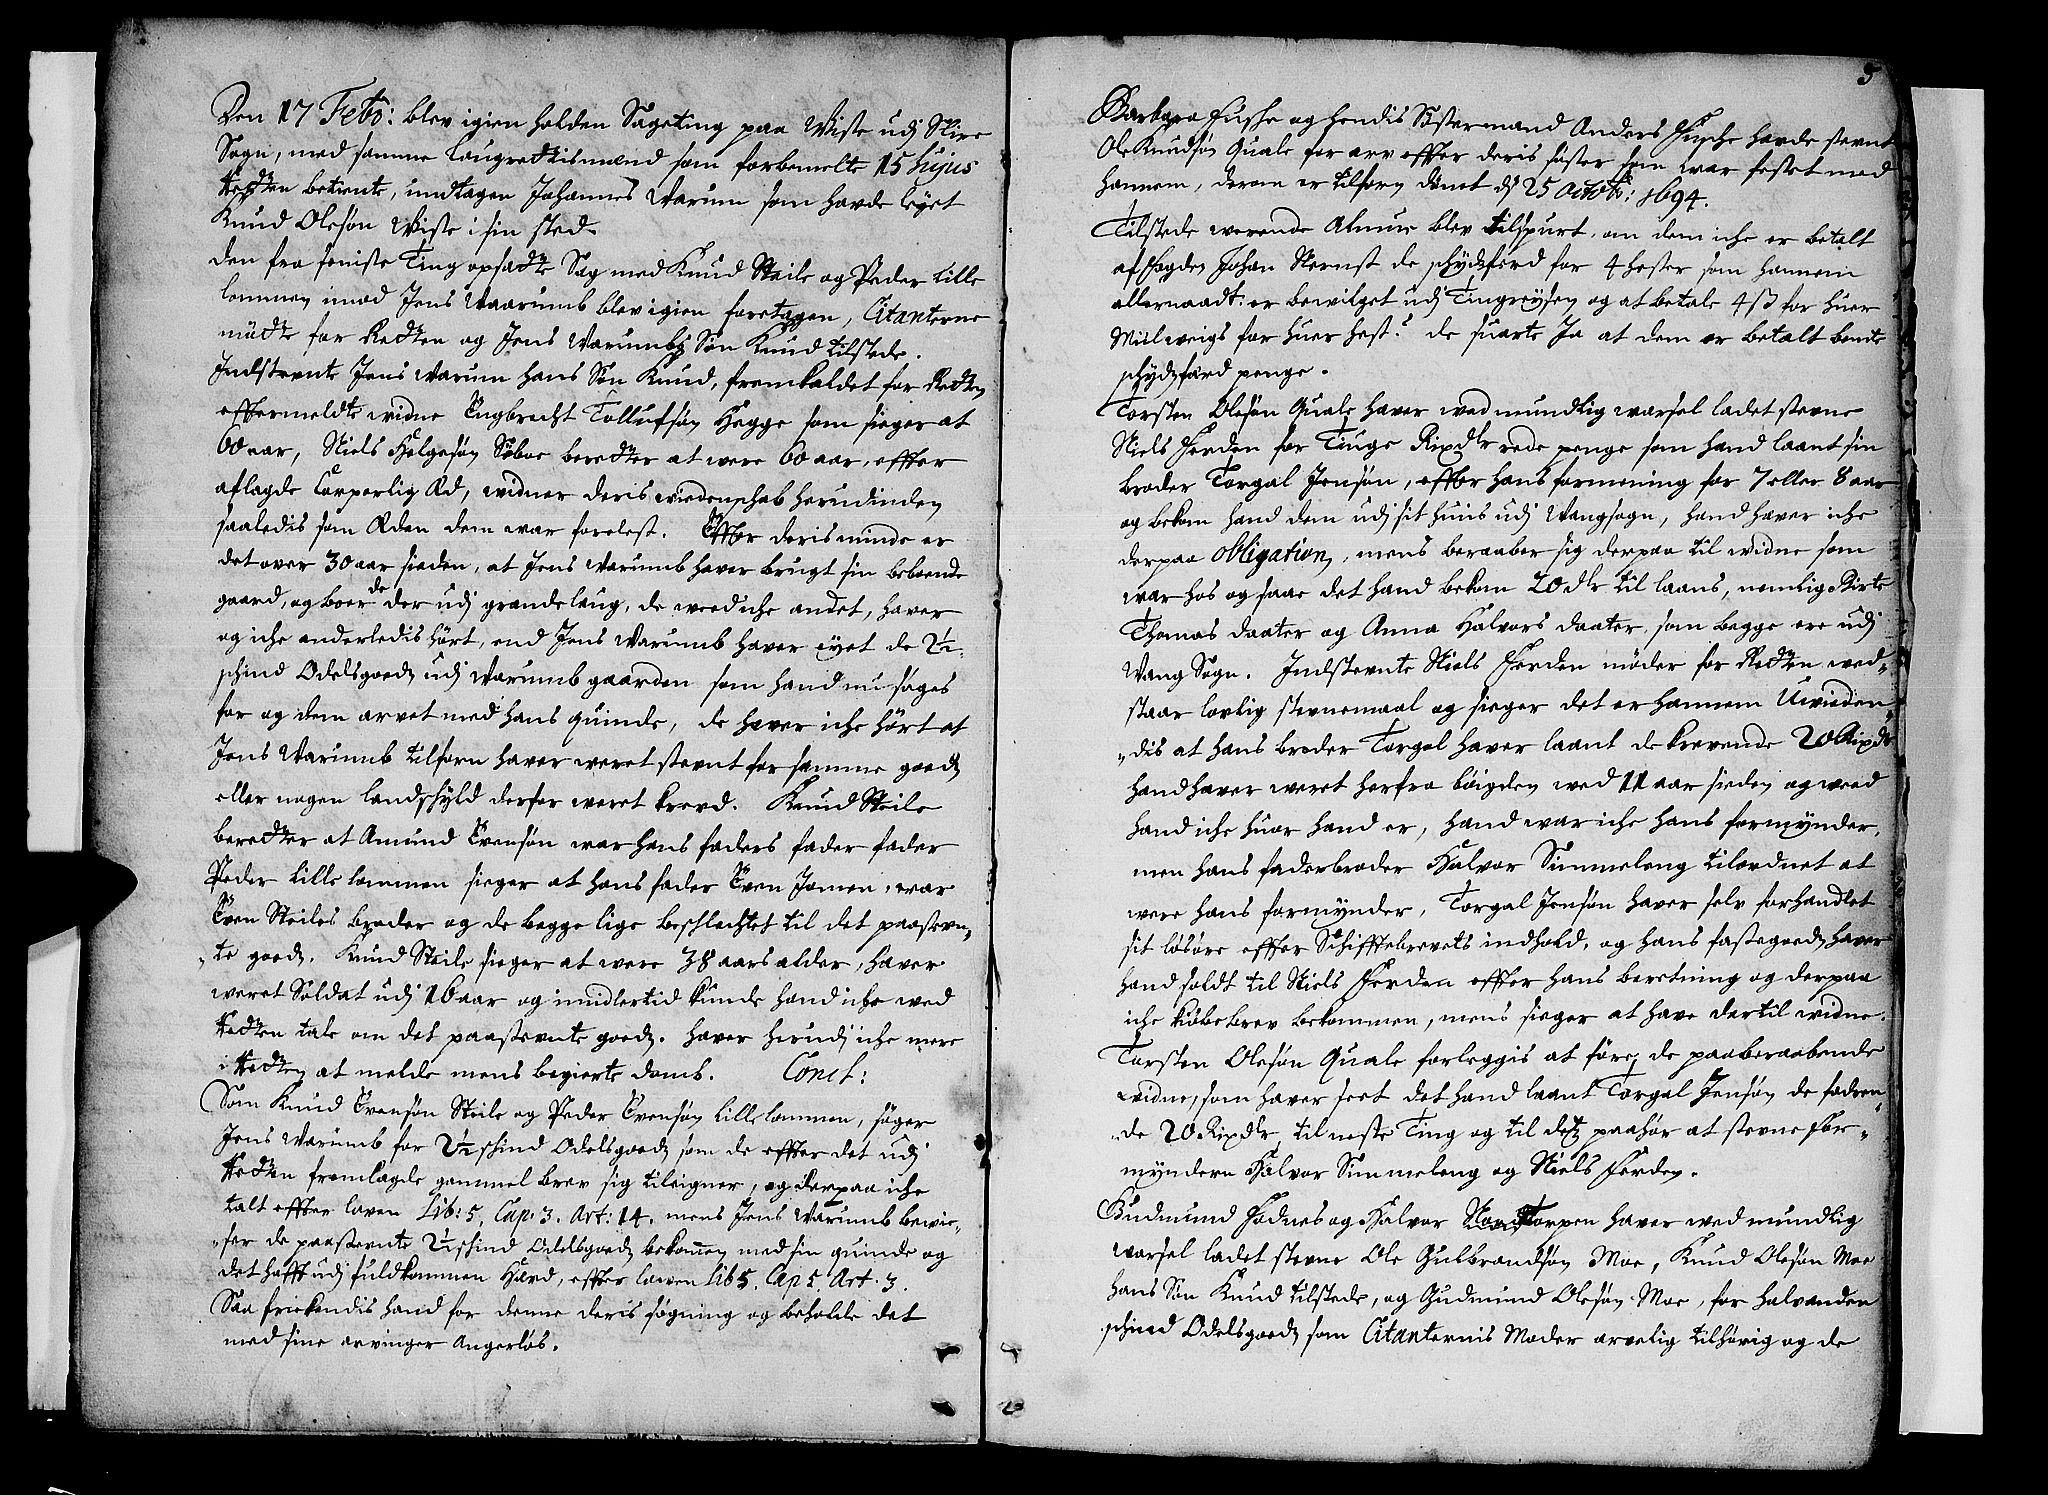 Den 17 Febr: blev igien holden Sageting paa Wiste udj Slire
Sogn, med samme Laugrettismænd som forbemelte 15 hujus
Retten betiente, undtagen Johannes Warum som hafde leyet
Knud Olesøn Wiste i sin sted.
Den fra seniste Ting opsadte Sag med Knud Steile og Peder Lille
lommen imod Jens Waarumb blev igien foretagen, Citanterne
mødte for Retten og Jens Warumbs Søn Knud tilstede.
Indstevnte Jens Warum hans Søn Knud, fremkaldet for Retten
effermeldte widne Engbrecht Tollufsøn Hegge som sieger at
60 aar, Niels Helgesøn Søboe beretter at were 60 aar, effter
aflagde Corporlig Æd, widner deris wiedenschab herudinden
saaledis som Æden dem war forelest. Effter deris minde er
det over 30 aar sieden, at Jens Warumb haver brugt sin beboende
gaard, og boer de der udj grandelaug, de weed iche andet, haver
og iche anderledis hørt, end Jens Warumb haver eyet de 2½
schind Odelsgoeds udj Warumb gaarden som hand nu søges
for og dem arvet med hans quinde, de haver iche hørt at
Jens Warumb tilforn haver weret stevnt for samme goeds
eller nogen landschyld derfor weret krevd. Knud Steile
beretter at Amund Evensøn war hans faders fader fader
Peder Lillelommen sieger at hans fader Even Jomen, war
Even Steiles broder og de begge lige beschlechtet til det paastevn„
„te goeds. Knud Steile sieger at were 38 aars alder, haver
weret Soldat udj 16 aar og imidlertid kunde hand iche wed
Retten tale om det paastevnte goeds. Haver herudj iche mere
i Retten at melde mens begierte domb. Concl:
Som Knud Evensøn Steile og Peder Evensøn Lillelommen, søger
Jens Warumb for 2½ schind Odelsgoeds som de effter det udj
Retten fremlagde gammel brev sig tileigner, og derpaa iche
talt effter laven Lib: 5. Cap. 3. Art: 14. mens Jens Warumb bewie„
„ser de paastevnte 2½ schind Odelsgoeds bekommen med sin quinde og
det hafft udj fuldkommen Hævd, effter lawen Lib 5. Cap 5. Art. 3.
Saa friekendis hand for denne deris søgning og beholde det
med sine arvinger angerløs.
5
Barbara Fusche og hendis Søstermand Anders Fusche havde stevnt
Ole Knudsøn Quale for arv effter deris søster som war festet med
hannem, derom er tilforn dømt d: 25 Octobr: 1694.
Tilstede werende Almue blev tilspurt, om dem iche er betalt
af fogden Johan Sternst de schydsferd for 4 hester som hannem
allernaadt: er bewilget udj Tingreysen og at betale 4 s for huer
Miil weigs for huer hest? de suarte Ja at dem er betalt bemte
schydsferd penge.
Torsten Olesøn Quale haver wed mundlig warsel ladet stevne
Niels Ferden for Tiuge Rixdlr rede penge som hand laant sin
broder Torgal Jensøn, effter hans formening for 7 eller 8 aar
og bekom hand dem udj sit huus udj Wangsogn, hand haver iche
derpaa Obligation, mens beraaber sig derpaa til widne som
war hos og saae det hand bekom 20 dlr til laans, nemlig Kirte
Thomas daater og Anna Halvors daater, som begge ere udj
Wang Sogn. Indstevnte Niels Ferden møder for Retten wed„
staar lovlig stevnemaal og sieger det er hannem Uwieden„
„dis at hans broder Torgal haver laant de krevende 20 Rixdlr
hand haver weret herfra bøigden wed 11 aar sieden og weed
hand iche huor hand er, hand war iche hans formynder,
men hans faderbroder Halvor Simmeleng tilordnet at
were hans formynder, Torgal Jensøn haver selv forhandlet
sit løsøre effter Schifftebrevets indhold, og hans fastegoeds haver
hand soldt til Niels Ferden effter hans beretning og derpaa
iche kiøbebrev bekommen, mens sieger at have dertil widne.
Torsten Olesøn Quale forleggis at føre de paaberaabende
widne, som haver seet det hand laant Torgal Jensøn de fodren„
„de 20 Rixdlr, til neste Ting og til dets paahør at stevne for„
myndern Halvor Simmeleng og Niels Ferden.
Gudmund Fødnes og Halvor Nordtorpen haver wed mundlig
warsel ladet stevne Ole Gulbrandsøn Moe, Knud Olesøn Moe
hans Søn Knud tilstede, og Gudmund Olesøn Moe, for halvanden
schind Odelsgoeds som Citanternis Moder arvelig tilhørig og de